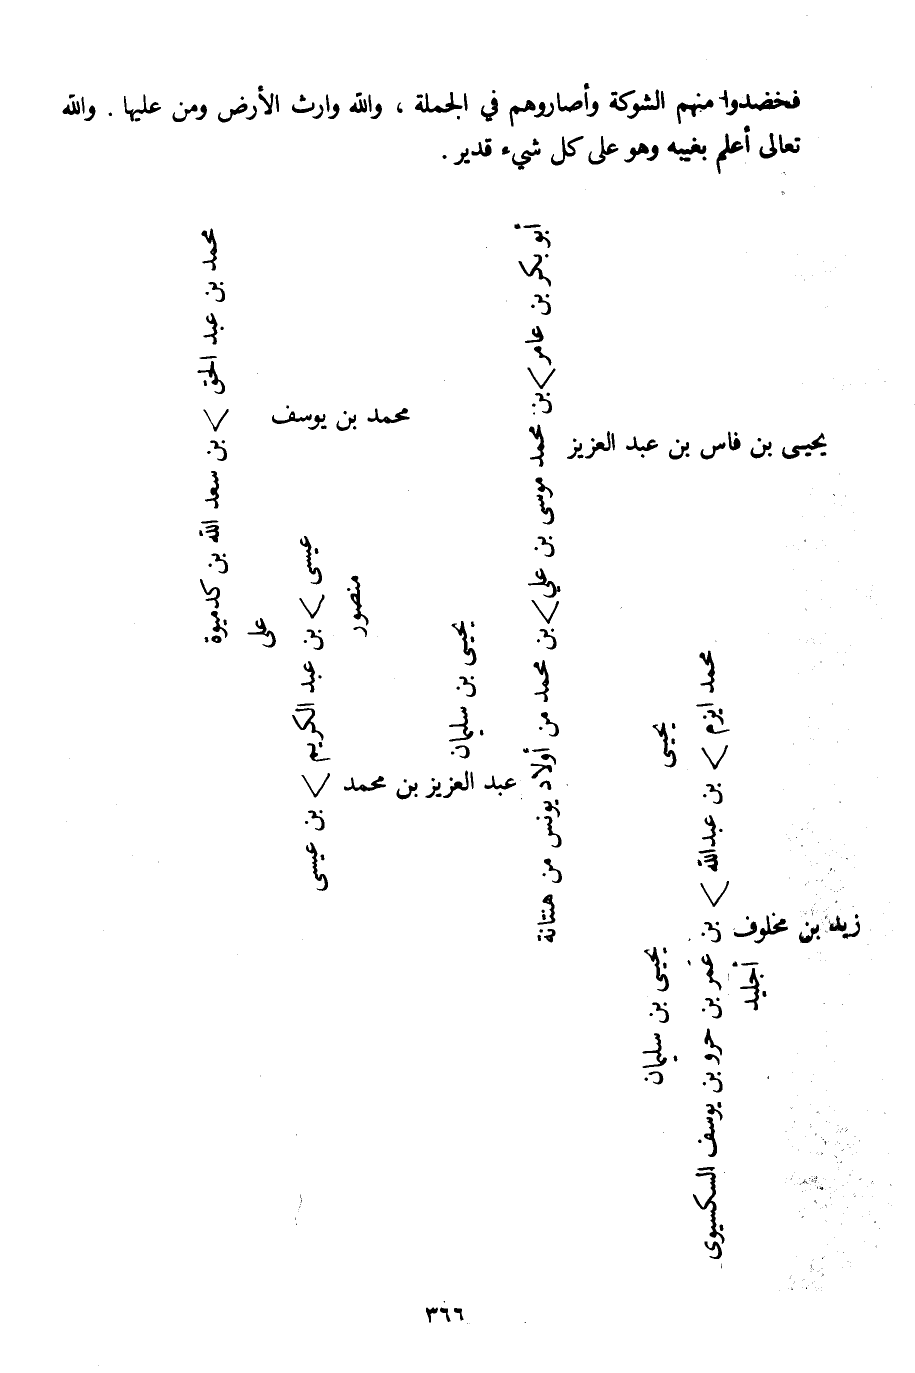 فخضدوا منهم الشوكة وأصاروهم في الجملة ، والله وارث الأرض ومن عليها . والله
تعالى أعلم بغيبه وهو على كل شيء قدير .
يحيى بن فاس بن عبد العزيز
أبو بكر بن عامر > بن محمد موسى بن علي > بن محمد من أولاد يونس من هنتاتة
يحيى بن سليمان
عبد العزيز بن محمد
محمد بن يوسف
منصور
عيسى > بن عبد الكريم > بن عيسى
على
محمد بن عبد الحق > بن سعد الله بن كدميوة
زيد بن مخلوف
أجليد
محمد ايزم > بن عبدالله > بن عمر بن حرو بن يوسف السكسيوى
يحيى
يحيى بن سليمان
٣٦٦